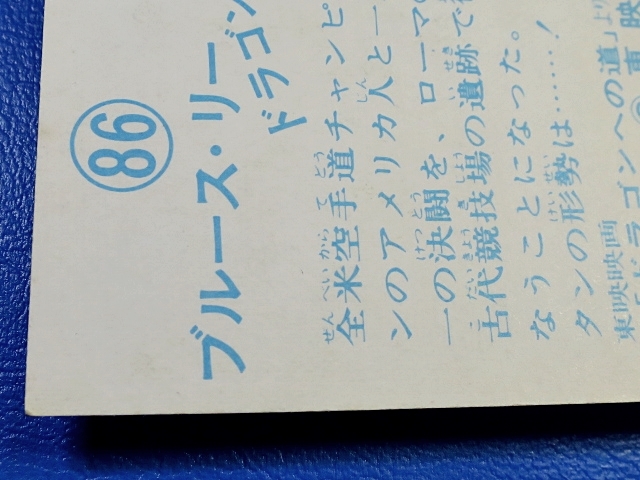 86
ブルース・リー
ドラゴン
全米空手道チャンピ
ンのアメリカ人と一
一の決闘を、ローマの
古代競技場の遺跡で
なうことになった。
タンの形勢は……!
東映映画
ドラゴンへの道」より